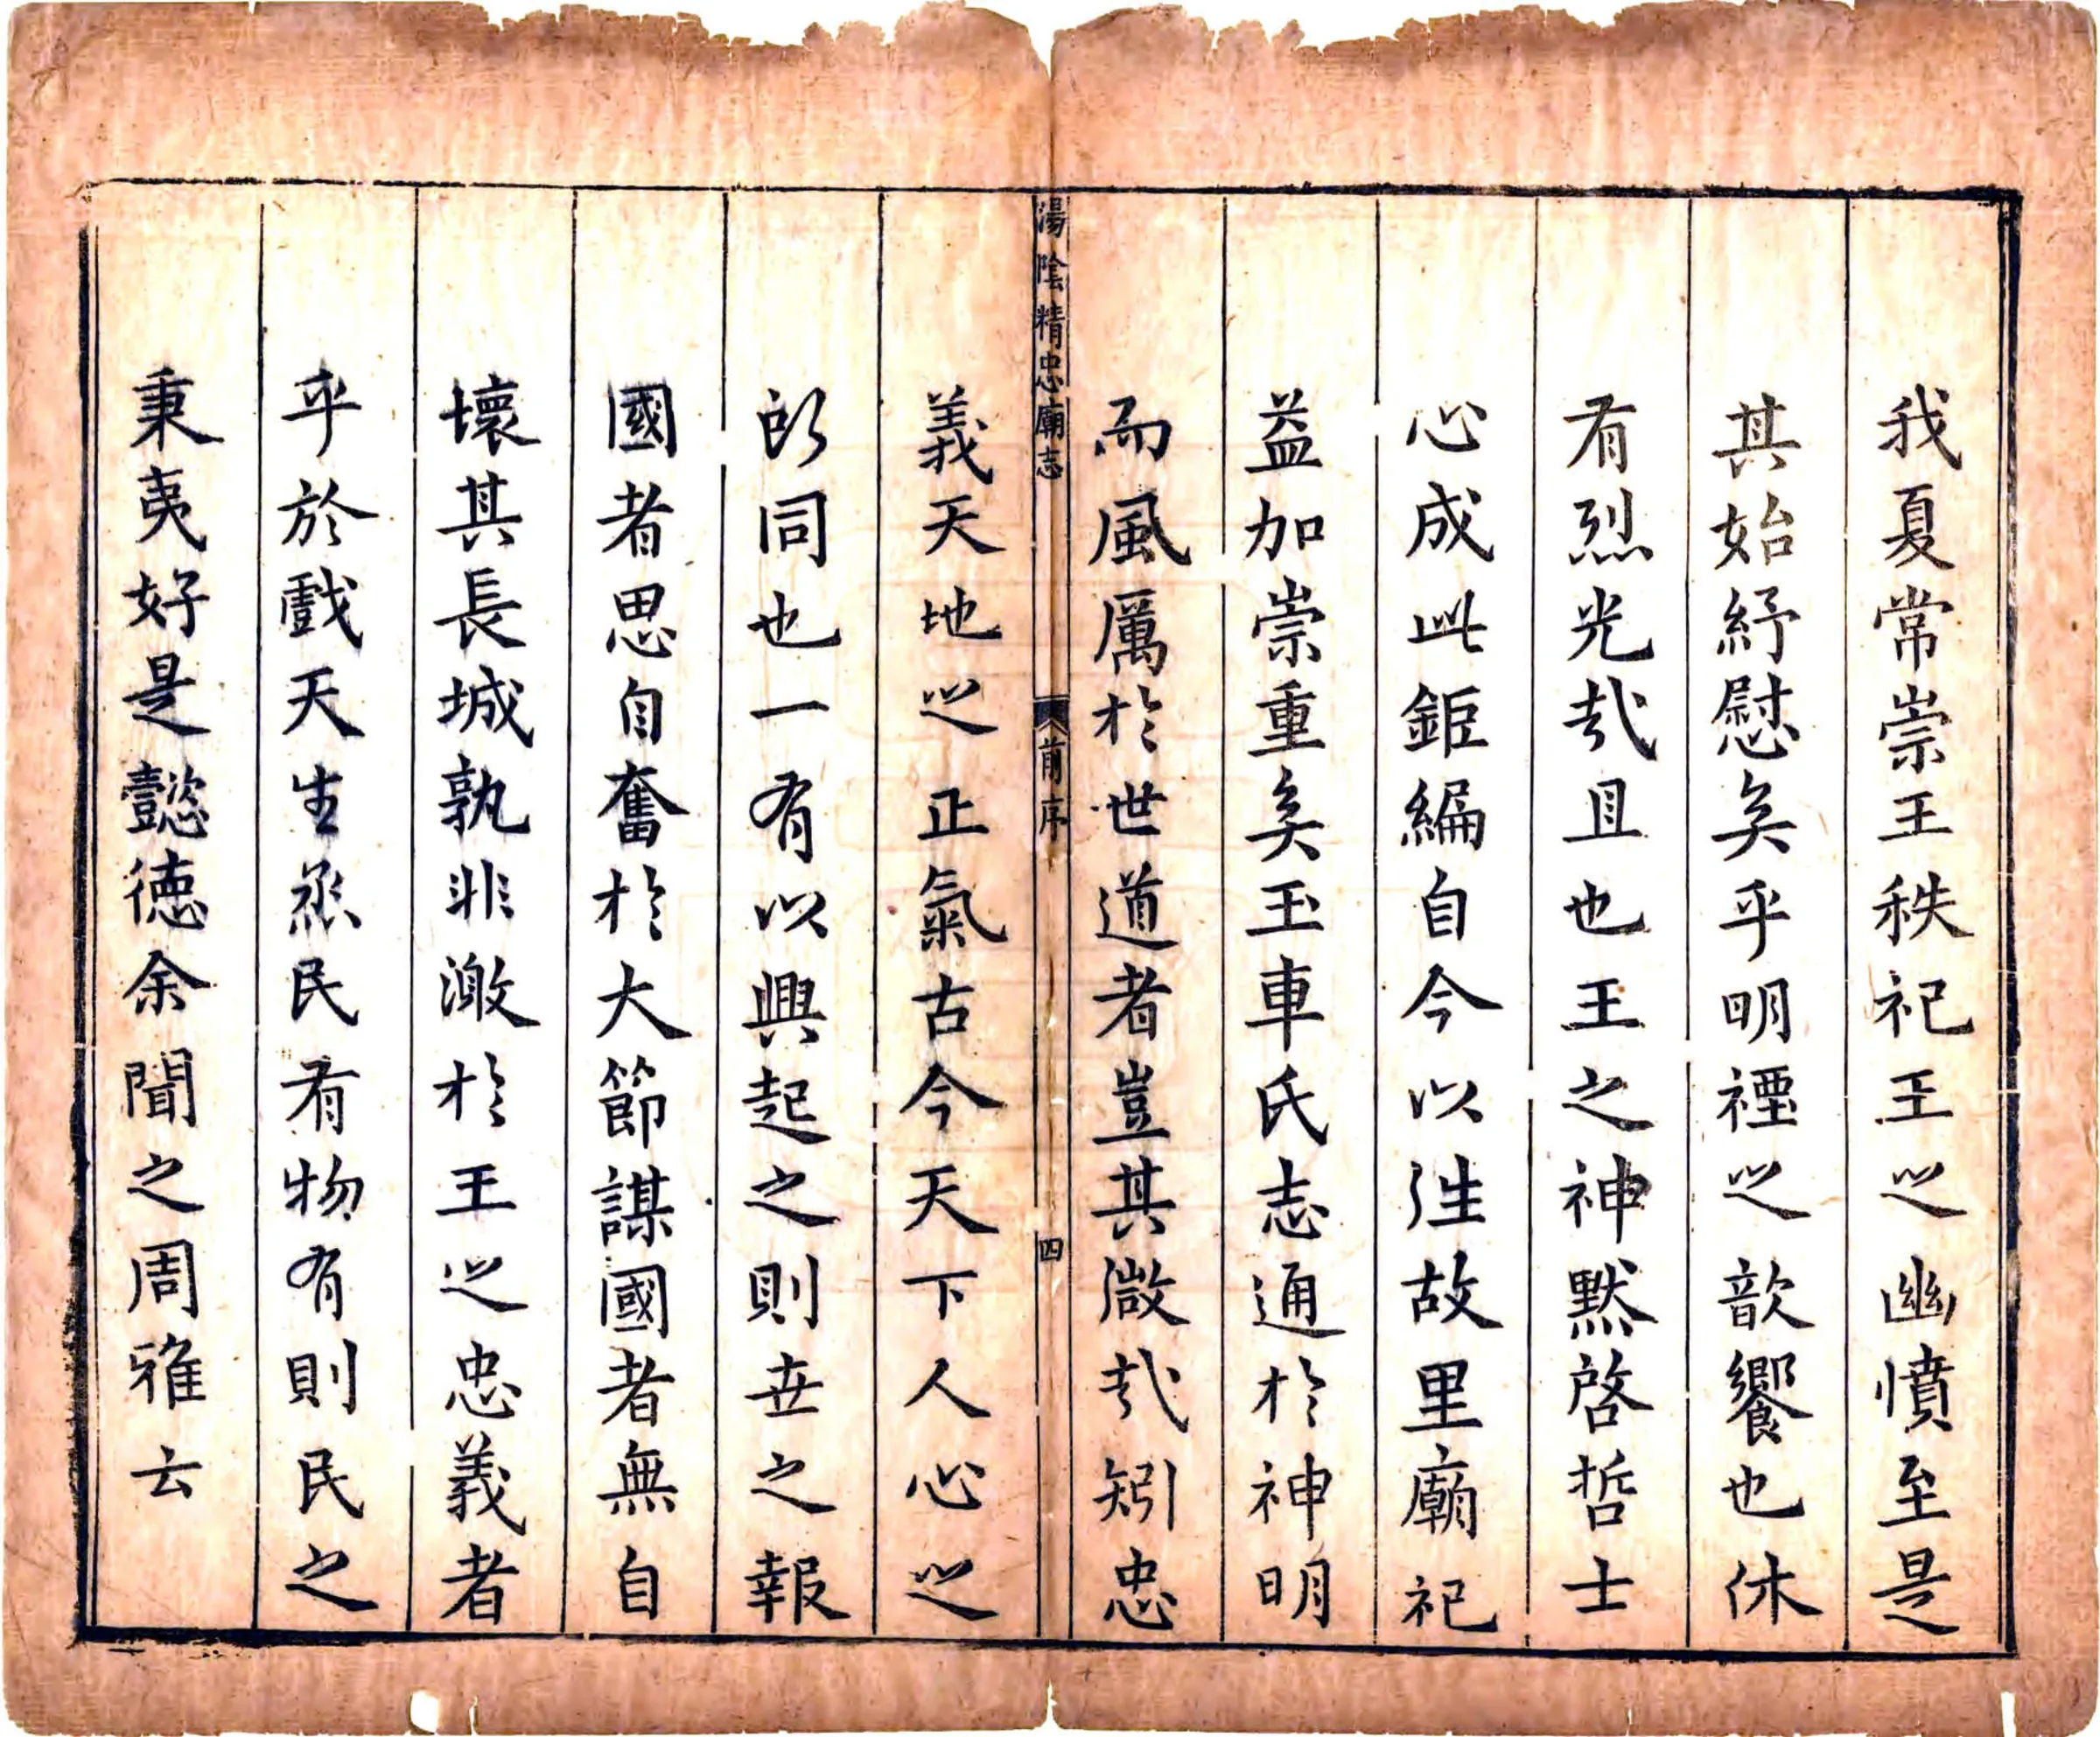 我夏常崇王秩祀王之幽憤至是
其始紓慰矣乎明禋之歆饗也休
有烈光哉且也王之神默啓哲士
心成此鉅編自今以往故里廟祀
益加崇重矣玉車氏志通於神明
而風厲於世道者豈其微哉矧忠
湯陰精忠廟志
前序
四
義天地之正氣古今天下人心之
所同也一有以興起之則世之報
國者思自奮於大節謀國者無自
壞其長城孰非激於王之忠義者
乎於戲天生烝民有物有則民之
秉夷好是懿德余聞之周雅云